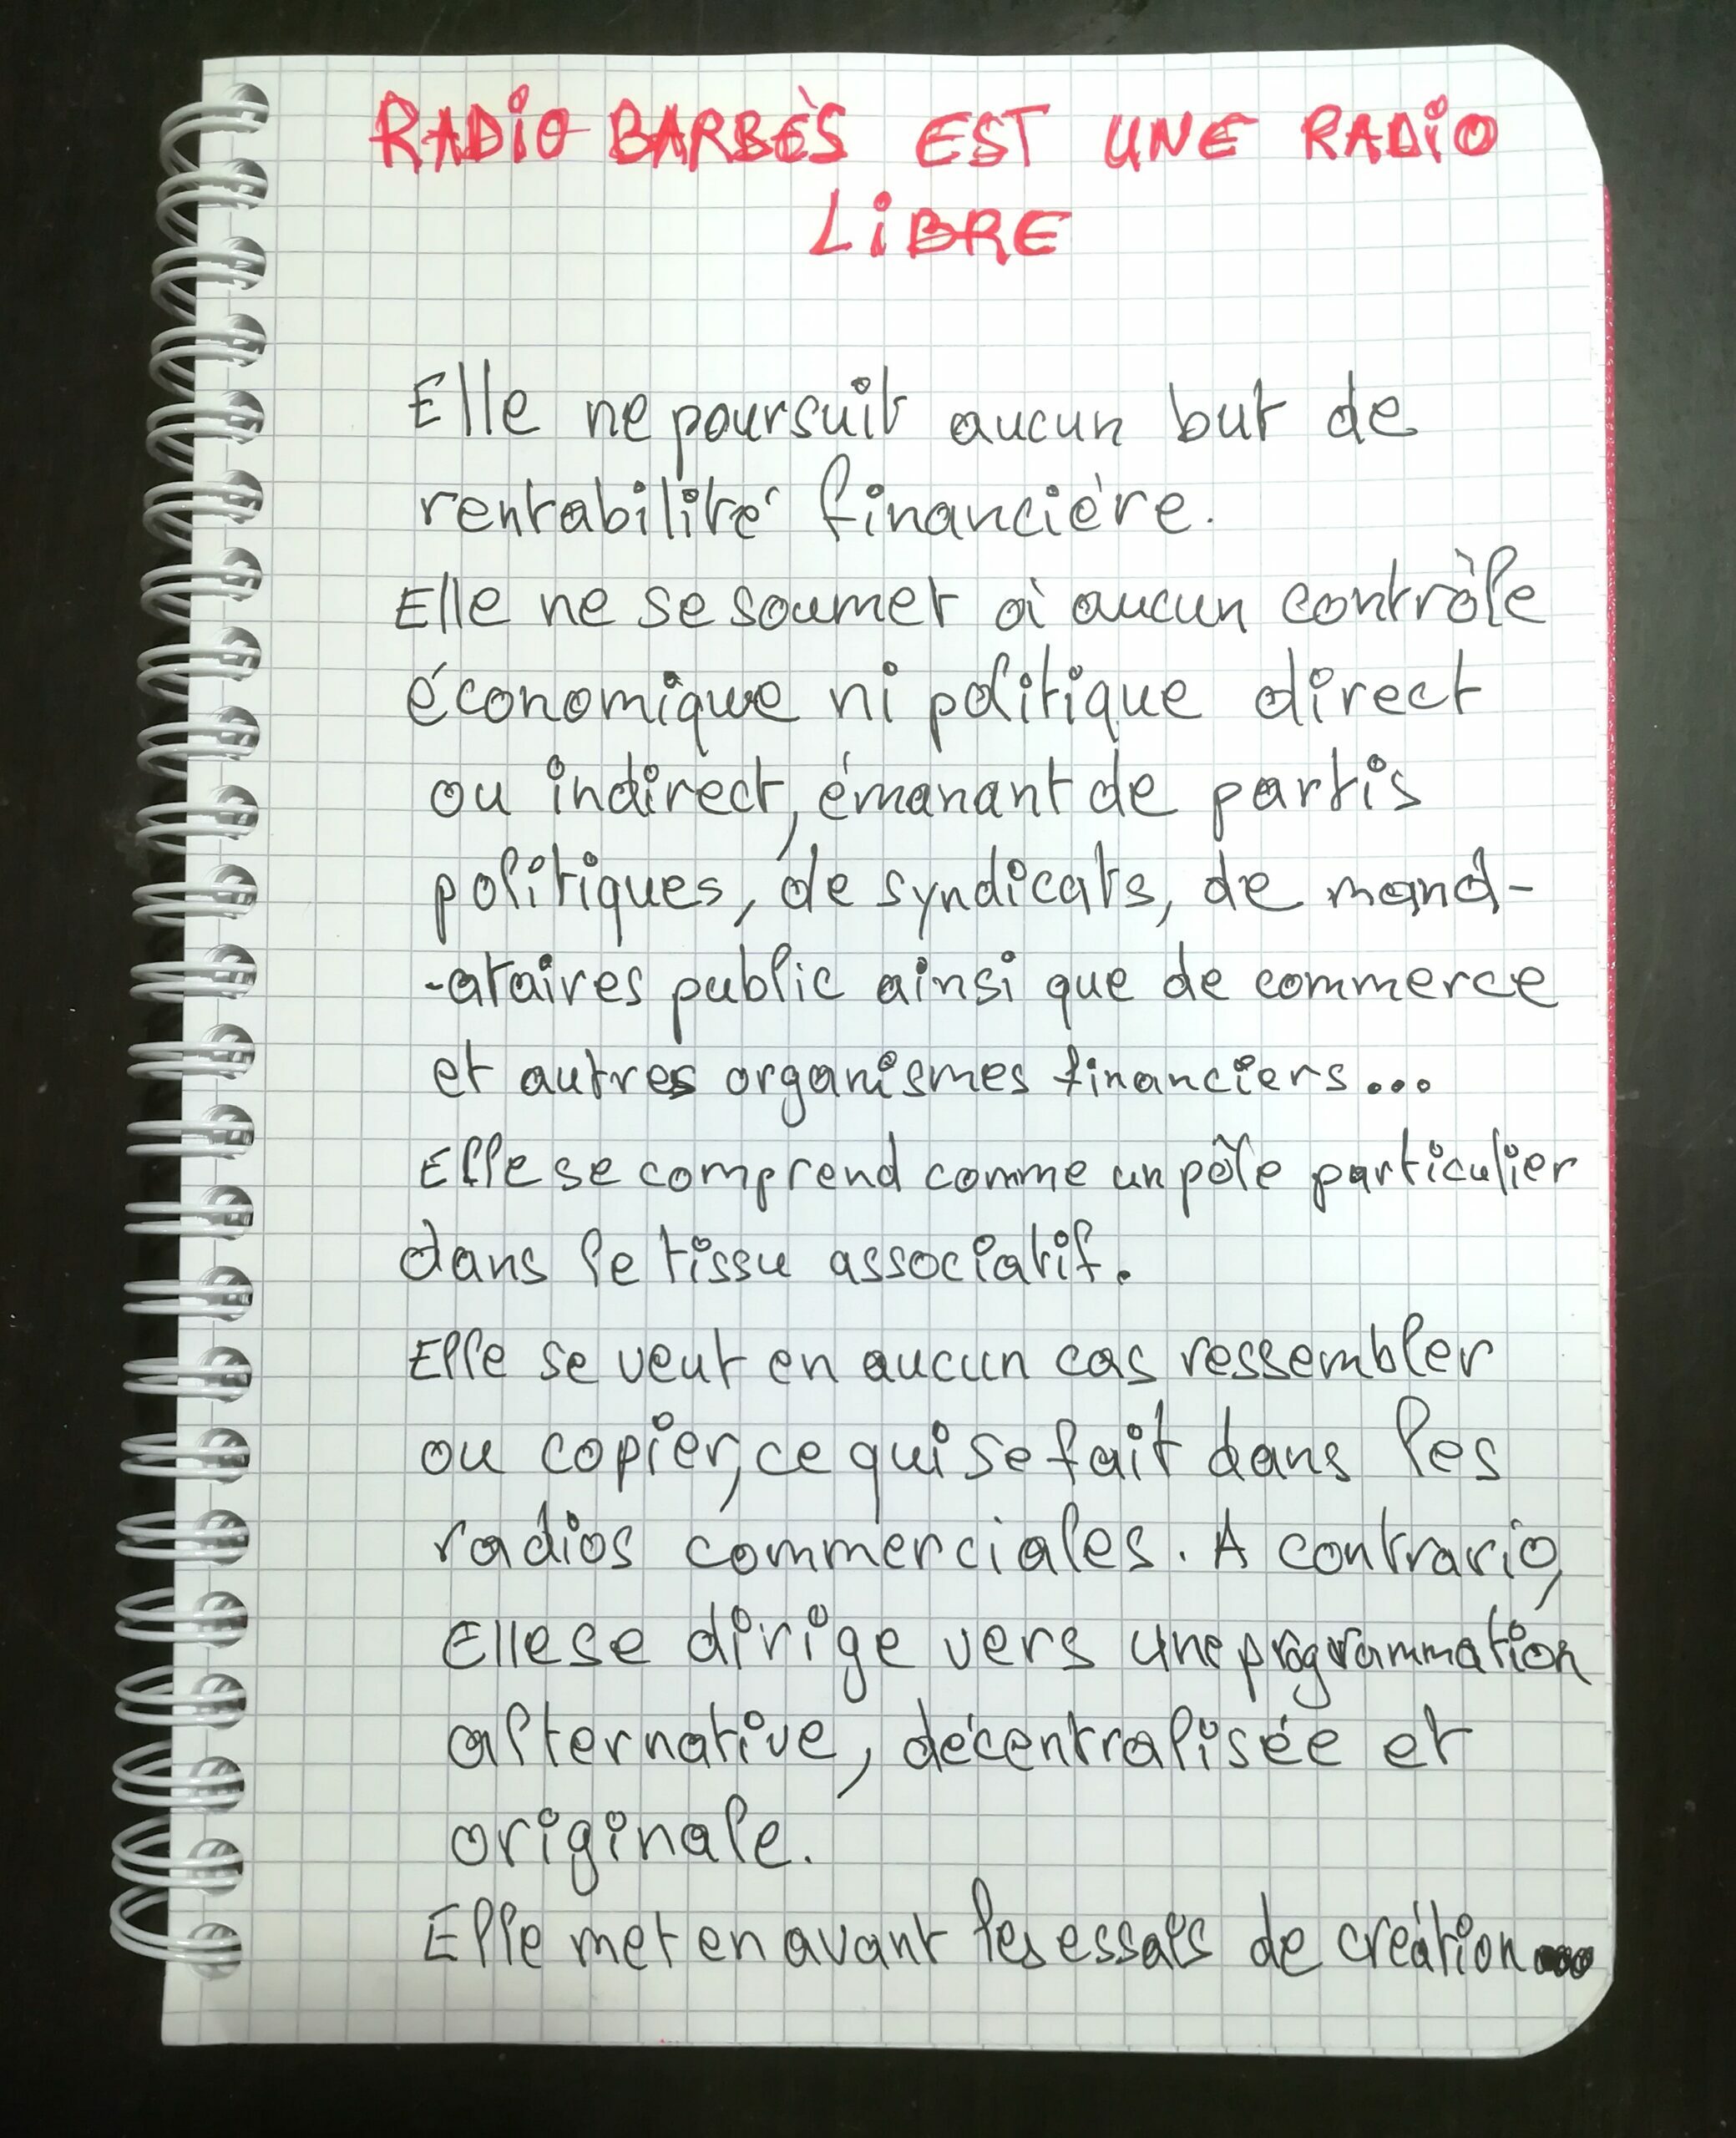 RADIO BARBÈS EST UNE RADIO
LIBRE
Elle ne poursuit aucun but de
rentabilité financière.
Elle ne se soumet à aucun contrôle
économique ni politique direct
ou indirect, émanant de partis
politiques, de syndicats, de mand-
-ataires public ainsi que de commerce
et autres organismes financiers...
Elle se comprend comme un pôle particulier
dans le tissu associatif.
Elle se veut en aucun cas ressembler
ou copier, ce qui se fait dans les
radios commerciales. A contrario,
Elle se dirige vers une programmation
alternative, décentralisée et
originale.
Elle met en avant les essais de création...